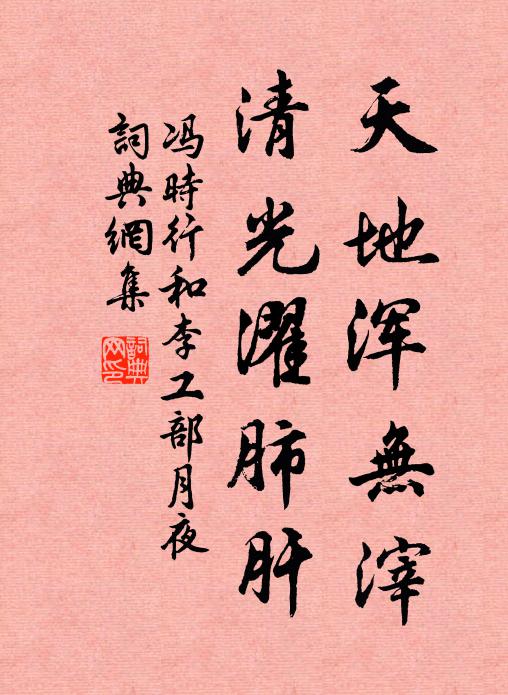 天地浑無滓
清光濯肺肝
冯時行和李工部月夜
詞典網集
詞典網印